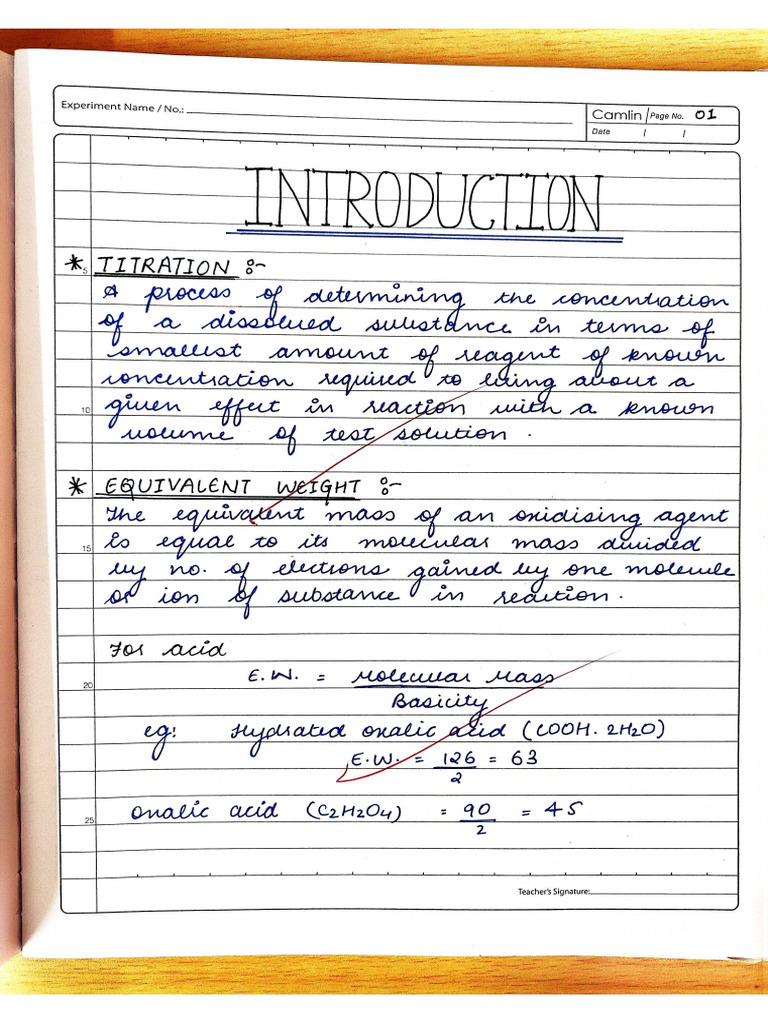 Experiment Name / No.:
Camlin Page No. 01
Date / /
INTRODUCTION
* TITRATION :-
5
A process of determining the concentration
of a dissolved substance in terms of
smallest amount of reagent of known
concentration required to bring about a
10 given effect in reaction with a known
volume of test solution.
* EQUIVALENT WEIGHT :-
The equivalent mass of an oxidising agent
15 is equal to its molecular mass divided
by no. of electrons gained by one molecule
or ion of substance in reaction.
For acid
20 E.W. = Molecular Mass
Basicity
eg: Hydrated oxalic acid (COOH. 2H2O)
E.W. = 126 = 63
2
25 Oxalic acid (C2H2O4) = 90 = 45
2
Teacher's Signature: